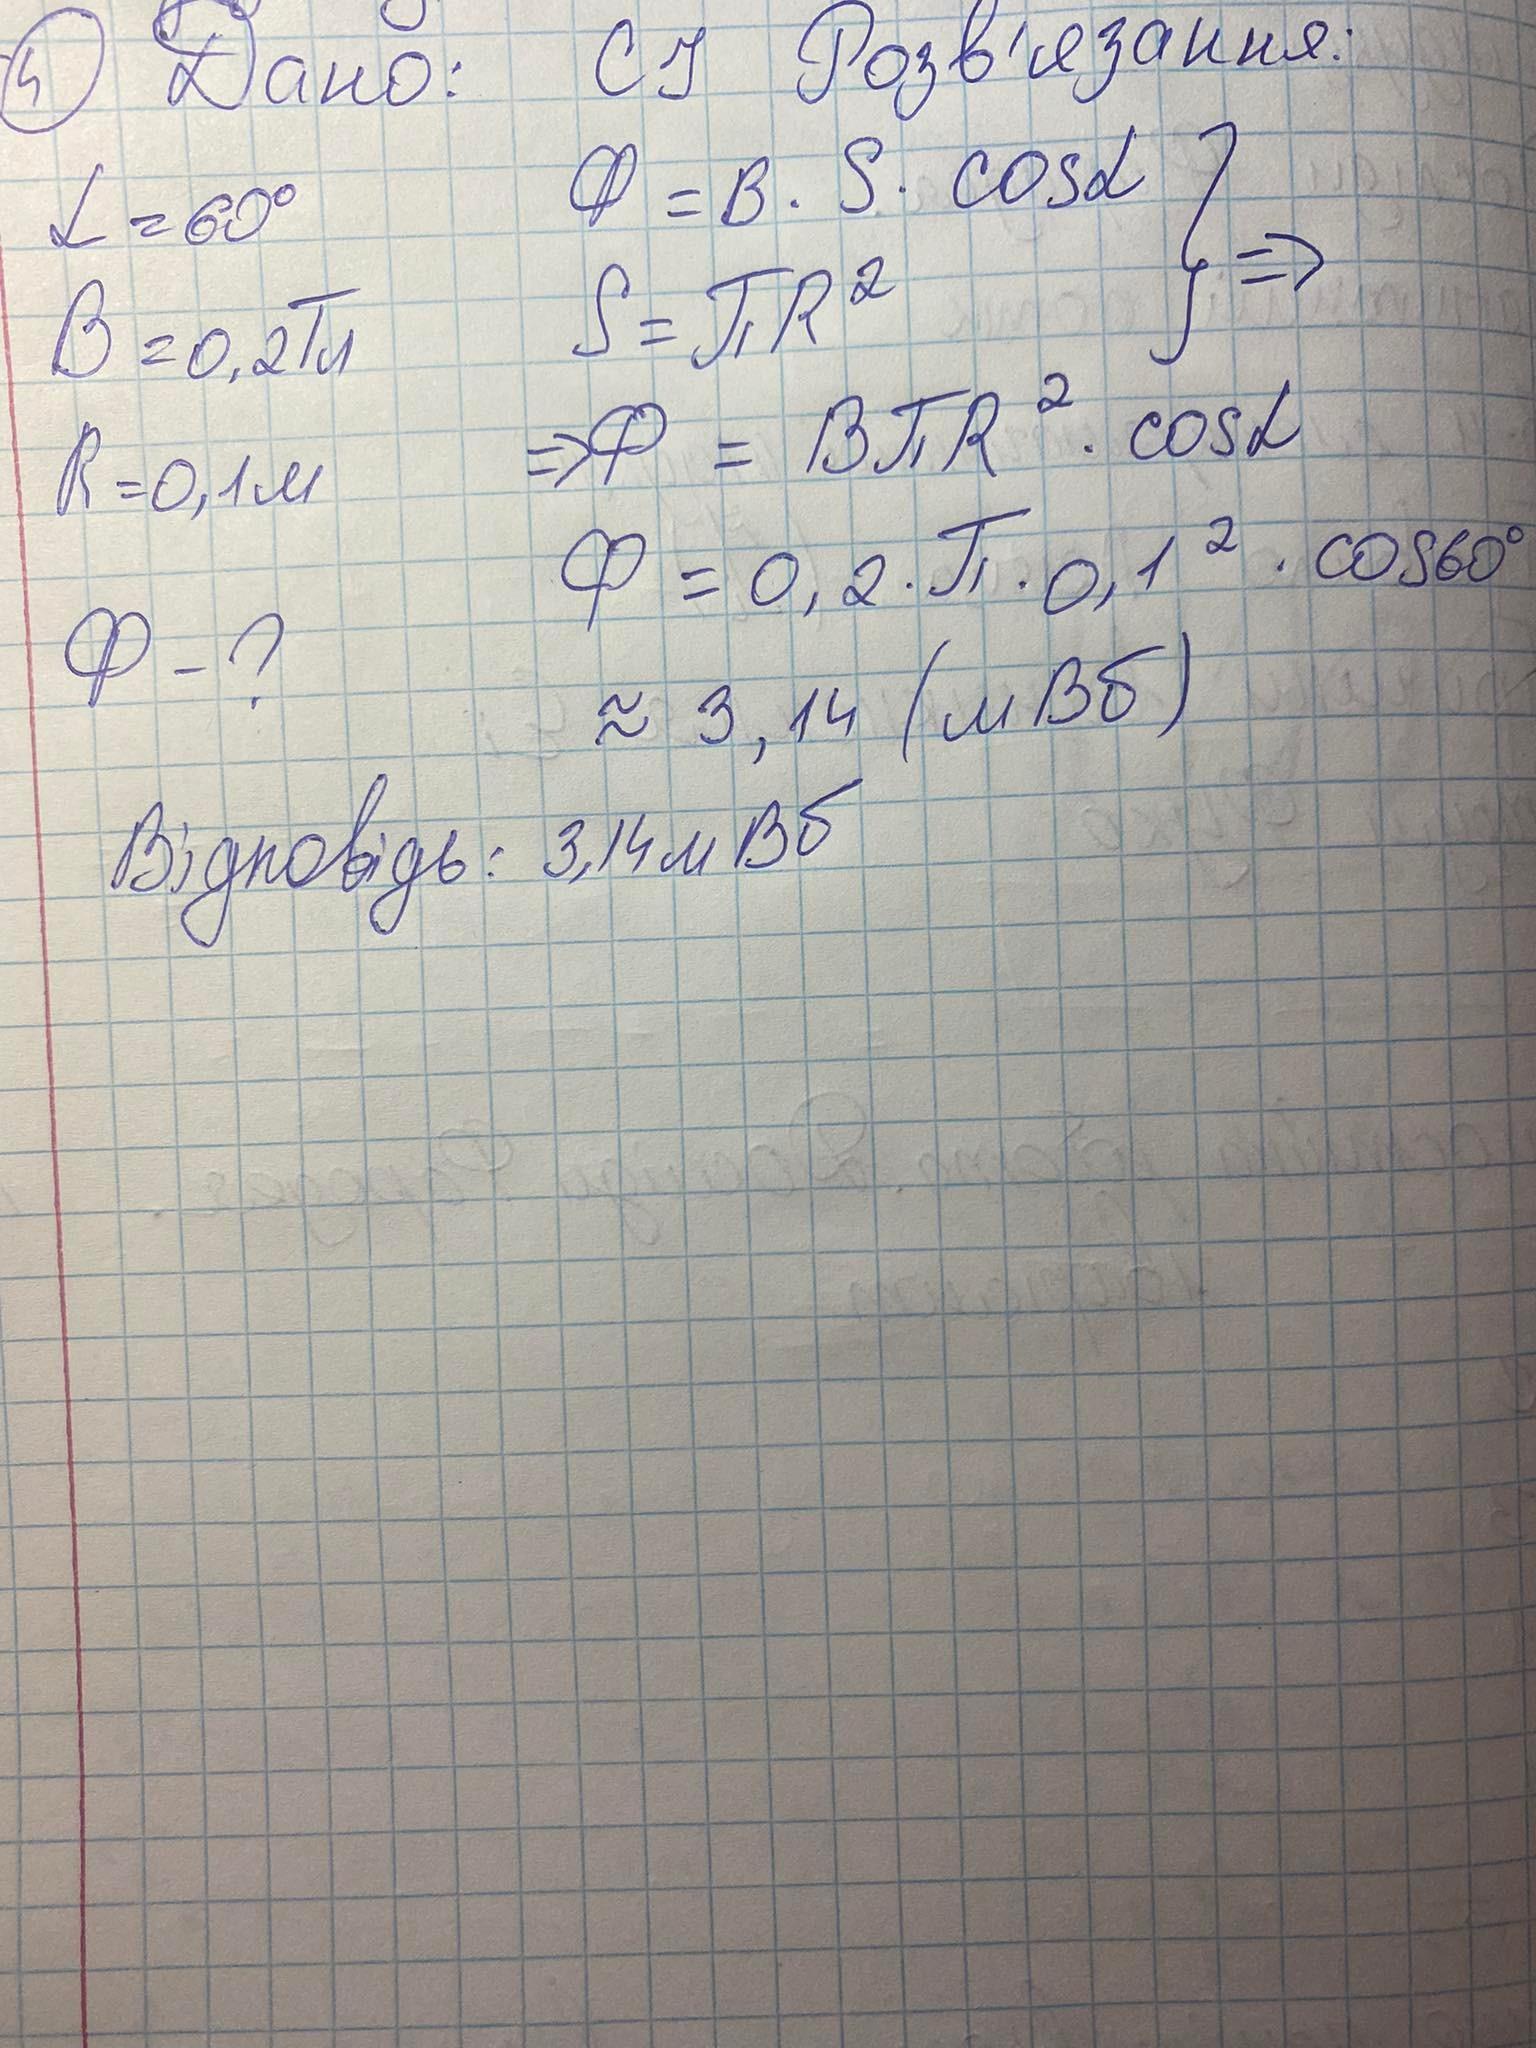 4 Дано: СІ Розв'язання:
α = 60° Φ = B · S · cosα
B = 0,2 Тл S = πR² } ⇒
R = 0,1 м ⇒ Φ = BπR² · cosα
Φ = 0,2 · π · 0,1² · cos60°
Φ - ? ≈ 3,14 (мВб)
Відповідь: 3,14 мВб